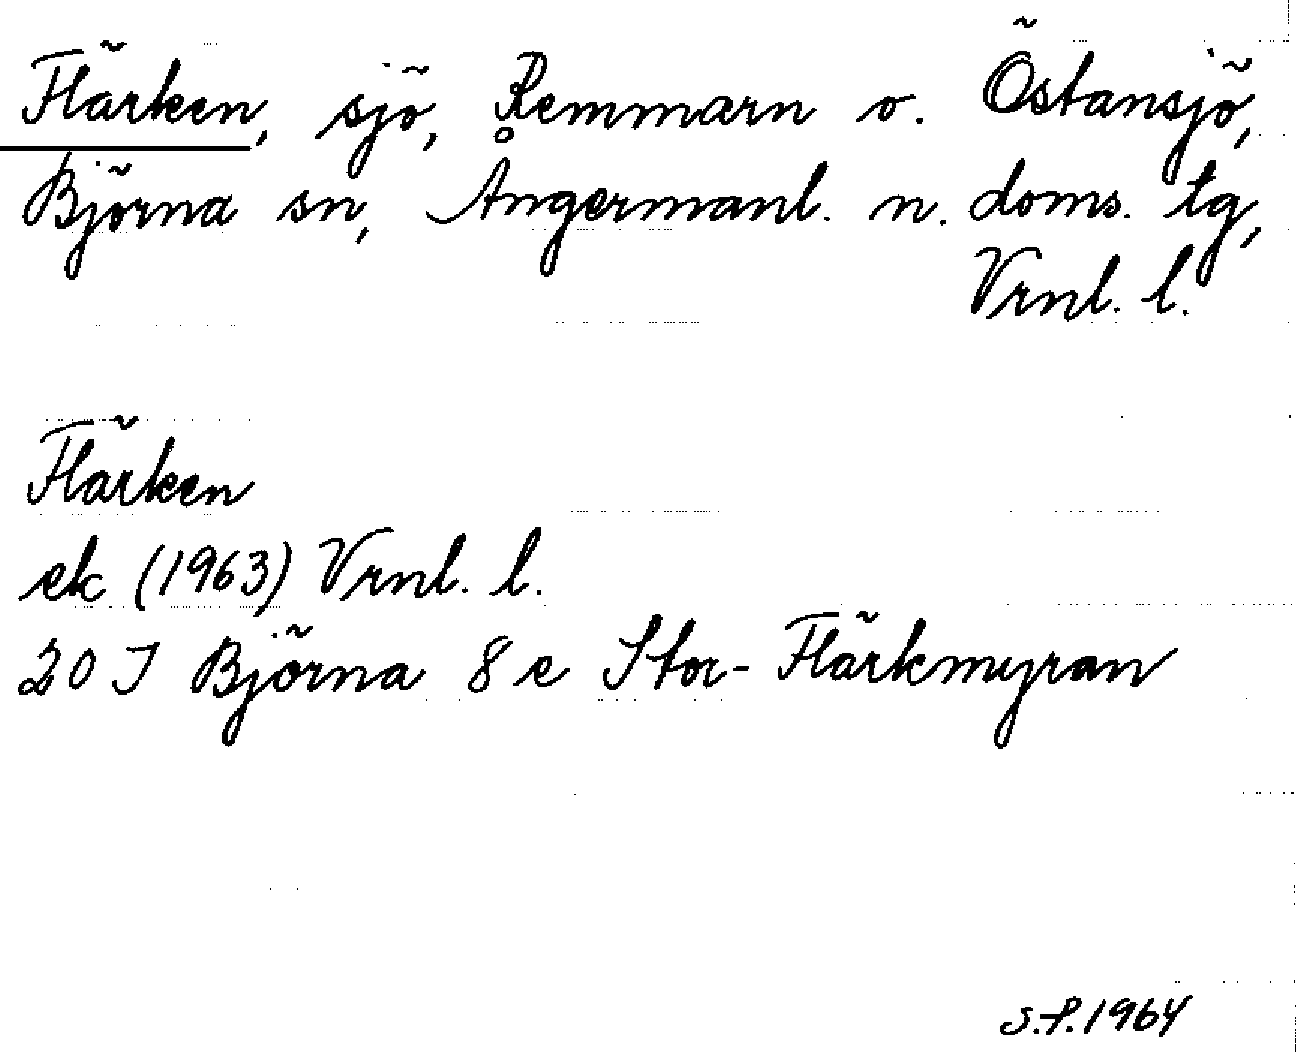 Flärken, sjö, Remmarn o. Östansjö,
Björna sn, Ångermanl. n. doms. tg,
Vrnl. l.
Flärken
ek (1963) Vrnl. l.
20 J Björna 8 e Stor-Flärkmyran
S.P. 1964